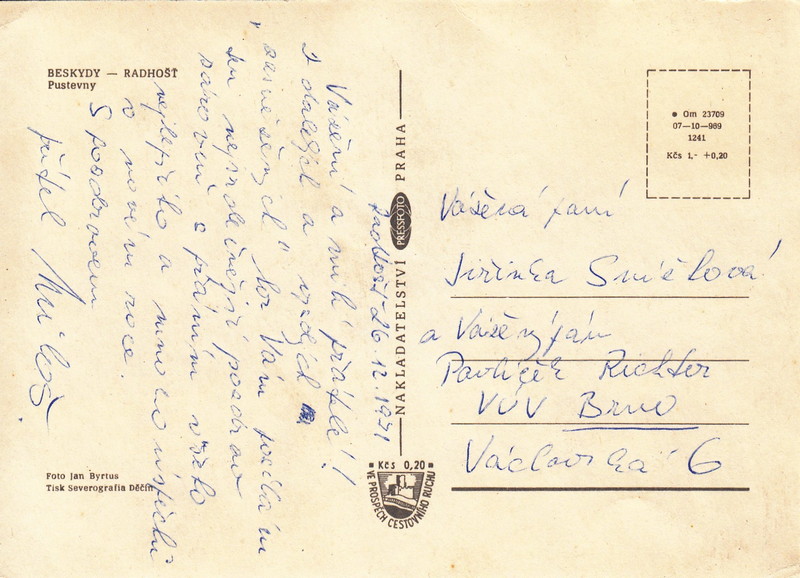 BESKYDY — RADHOŠŤ
Pustevny
Vážení a milí přátelé!
Z dalekých a vždy
"zasněžených" hor Vám posílám
ten nejsrdečnější pozdrav
zároveň s přáním všeho
nejlepšího a mnoho úspěchů
v novém roce.
S pozdravem
přítel Miloš
Radhošť 26.12.1971
NAKLADATELSTVÍ PRESSFOTO PRAHA
Om 23709
07—10—989
1241
Kčs 1,- +0,20
Vážená paní
Jiřinka Sméková
a Vážený pán
Pavlíček Richter
VÚV Brno
Václavská 6
Kčs 0,20
VE PROSPĚCH CESTOVNÍHO RUCHU
Foto Jan Byrtus
Tisk Severografia Děčín